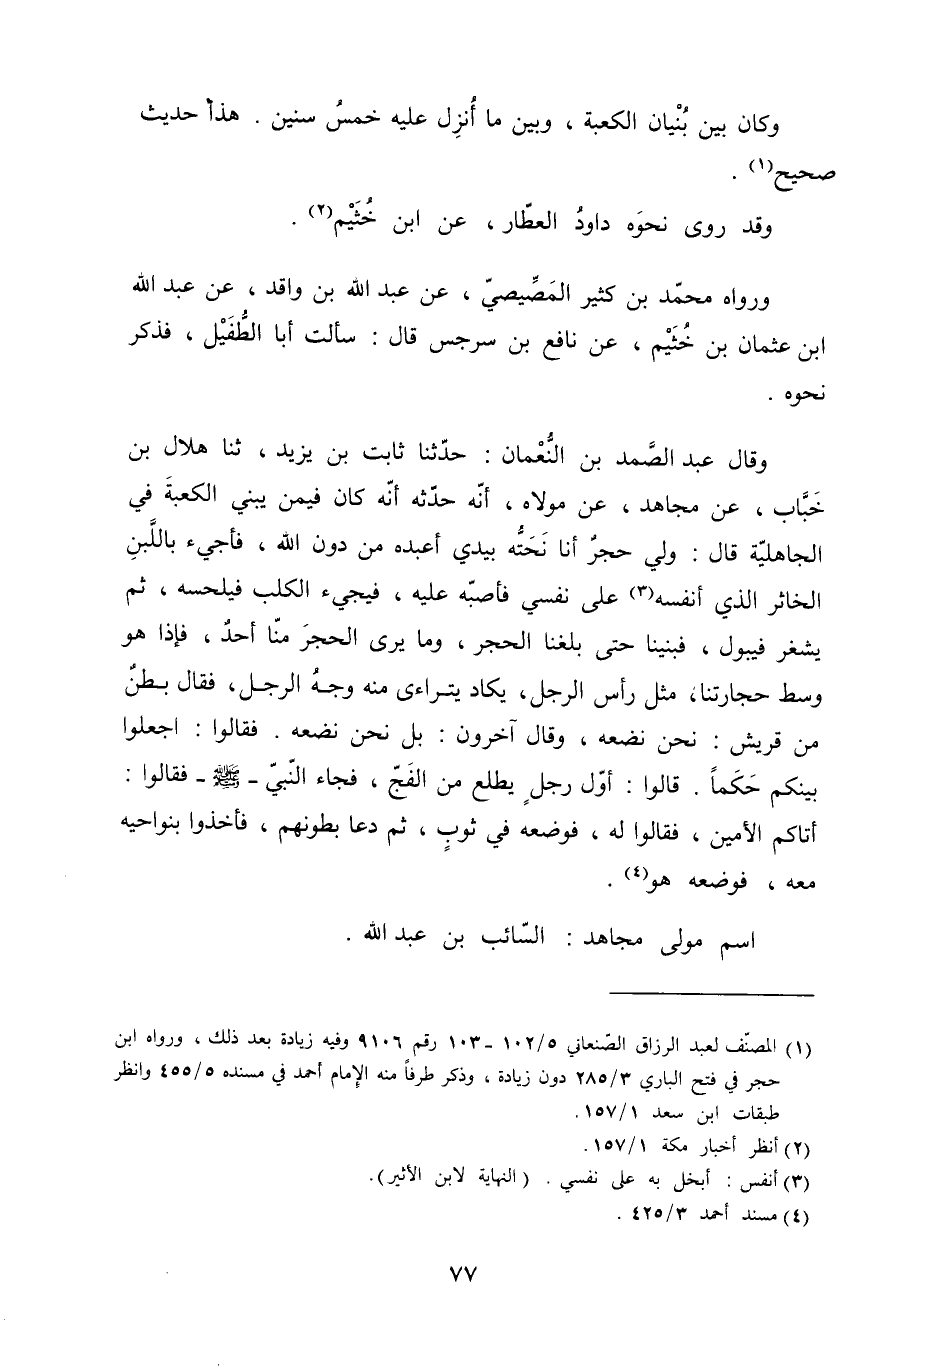 وكان بين بُنْيان الكعبة ، وبين ما أُنزِل عليه خمسُ سنين . هذا حديث
صحيح(١) .
وقد روى نحوَه داودُ العطّار ، عن ابن خُثَيْم(٢) .
ورواه محمّد بن كثير المَصِّيصيّ ، عن عبد الله بن واقد ، عن عبد الله
ابن عثمان بن خُثَيْم ، عن نافع بن سرجس قال : سألت أبا الطُّفَيْل ، فذكر
نحوه .
وقال عبد الصَّمد بن النُّعْمان : حدّثنا ثابت بن يزيد ، ثنا هلال بن
خَبَّاب ، عن مجاهد ، عن مولاه ، أنّه حدّثه أنّه كان فيمن يبني الكعبةَ في
الجاهليّة قال : ولي حجرٌ أنا نَحَتُّه بيدي أعبده من دون الله ، فأجيء باللَّبن
الخاثر الذي أنفسه(٣) على نفسي فأصبّه عليه ، فيجيء الكلب فيلحسه ، ثم
يشغر فيبول ، فبنينا حتى بلغنا الحجر ، وما يرى الحجرَ منّا أحدٌ ، فإذا هو
وسط حجارتنا، مثل رأس الرجل، يكاد يتراءى منه وجهُ الرجل، فقال بطنٌ
من قريش : نحن نضعه ، وقال آخرون : بل نحن نضعه . فقالوا : اجعلوا
بينكم حَكَماً . قالوا : أوّل رجلٍ يطلع من الفَجّ ، فجاء النّبيّ ـ ﷺ ـ فقالوا :
أتاكم الأمين ، فقالوا له ، فوضعه في ثوبٍ ، ثم دعا بطونهم ، فأخذوا بنواحيه
معه ، فوضعه هو(٤) .
اسم مولى مجاهد : السّائب بن عبد الله .
(١) المصنّف لعبد الرزاق الصّنعاني ١٠٢/٥ ـ ١٠٣ رقم ٩١٠٦ وفيه زيادة بعد ذلك ، ورواه ابن
حجر في فتح الباري ٢٨٥/٣ دون زيادة ، وذكر طرفاً منه الإمام أحمد في مسنده ٤٥٥/٥ وانظر
طبقات ابن سعد ١٥٧/١.
(٢) أنظر أخبار مكة ١٥٧/١.
(٣) أنفس : أبخل به على نفسي . (النهاية لابن الأثير).
(٤) مسند أحمد ٤٢٥/٣ .
٧٧